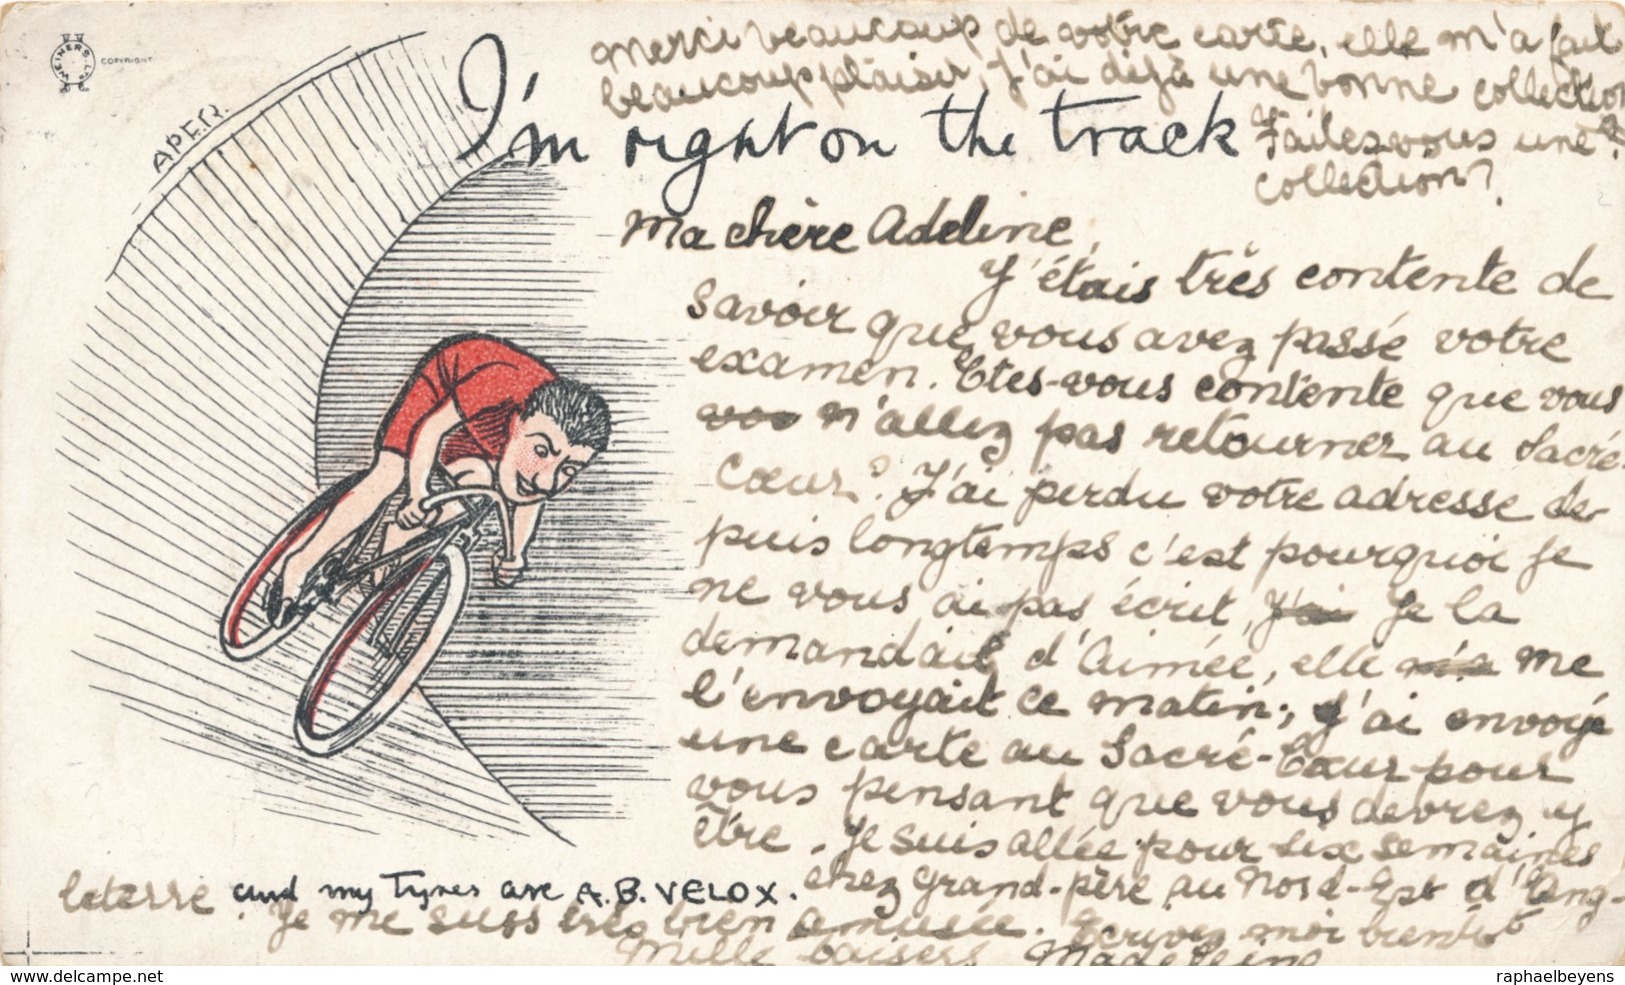 WEINERS LTD
COPYRIGHT
A.P.E.R.
I'm right on the track
Ma chère Adeline,
J'étais très contente de
savoir que vous avez passé votre
examen. Etes-vous contente que vous
vos n'allez pas retourner au Sacré-
Cœur? J'ai perdu votre adresse de-
puis longtemps c'est pourquoi je
ne vous ai pas écrit, J'ai Je la
demandait d'Aimée, elle m'a me
l'envoyait ce matin; j'ai envoyé
une carte au Sacré-Cœur pour
vous pensant que vous devrez y
être. Je suis allée pour six semaines
chez grand-père au Nord-Est d'Ang-
leterre. Je me suis très bien amusée. Ecrivez moi bientôt
Mille baisers Madeleine
and my Tyres are A.B. VELOX.
Merci beaucoup de votre carte, elle m'a fait
beaucoup plaisir, J'ai déjà une bonne collection
Faites vous une
collection?
delcampe.net
raphaelbeyens